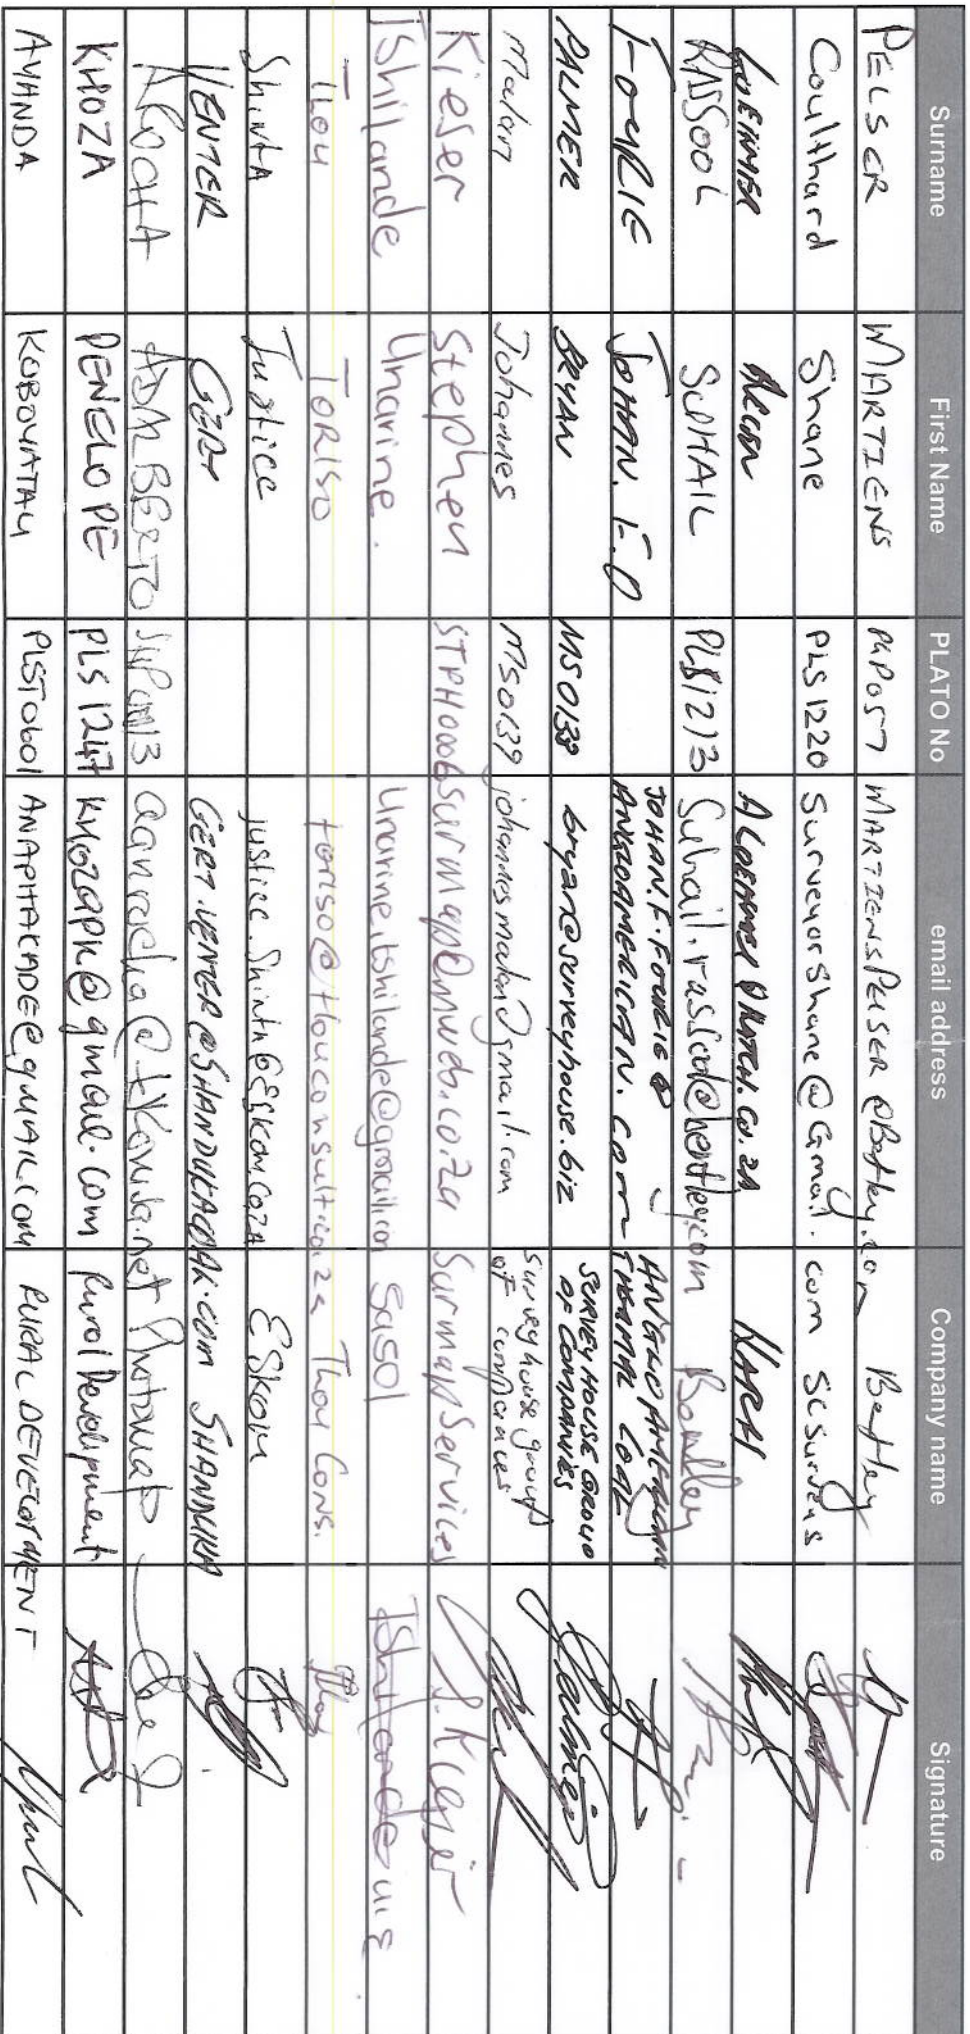 Surname First Name PLATO No email address Company name Signature
PELSER MARTIENS PGP057 MARTIENSPELSER@Bentley.com Bentley
Coulthard Shane PLS1220 SurveyorShane@Gmail.com SC Surveys
@HATCH.CO.ZA HATCH
RASSOOL SUHAIL PLS1213 Suhail.rassool@bentley.com Bentley
FOURIE JOHAN. F.O JOHAN.F.FOURIE@
ANGLOAMERICAN.com ANGLO AMERICAN
THERMAL COAL
PALMER BRYAN MS0138 bryan@surveyhouse.biz SURVEY HOUSE GROUP
OF COMPANIES
Malan Johannes MS0139 johannesmalan@gmail.com Survey house group
of companies
Kieser Stephen STPH0006 surmap@mweb.co.za Surmap Services S. Kieser
Tshilande Unarine. Unarine.tshilande@gmail.com Sasol Tshilande
Tlou TORISO toriso@tlouconsult.co.za Tlou Cons.
Shinta Justice justice.Shinta@Eskom.co.za Eskom
VENTER GERT GERT.VENTER@SHANDUKACOAL.com SHANDUKA
A ROCHA ADALBERTO
KHOZA PENELOPE PLS1247 khozapk@gmail.com Rural Development
AYANDA PLST0601 ANAPHAKADE@GMAIL.COM RURAL DEVELOPMENT